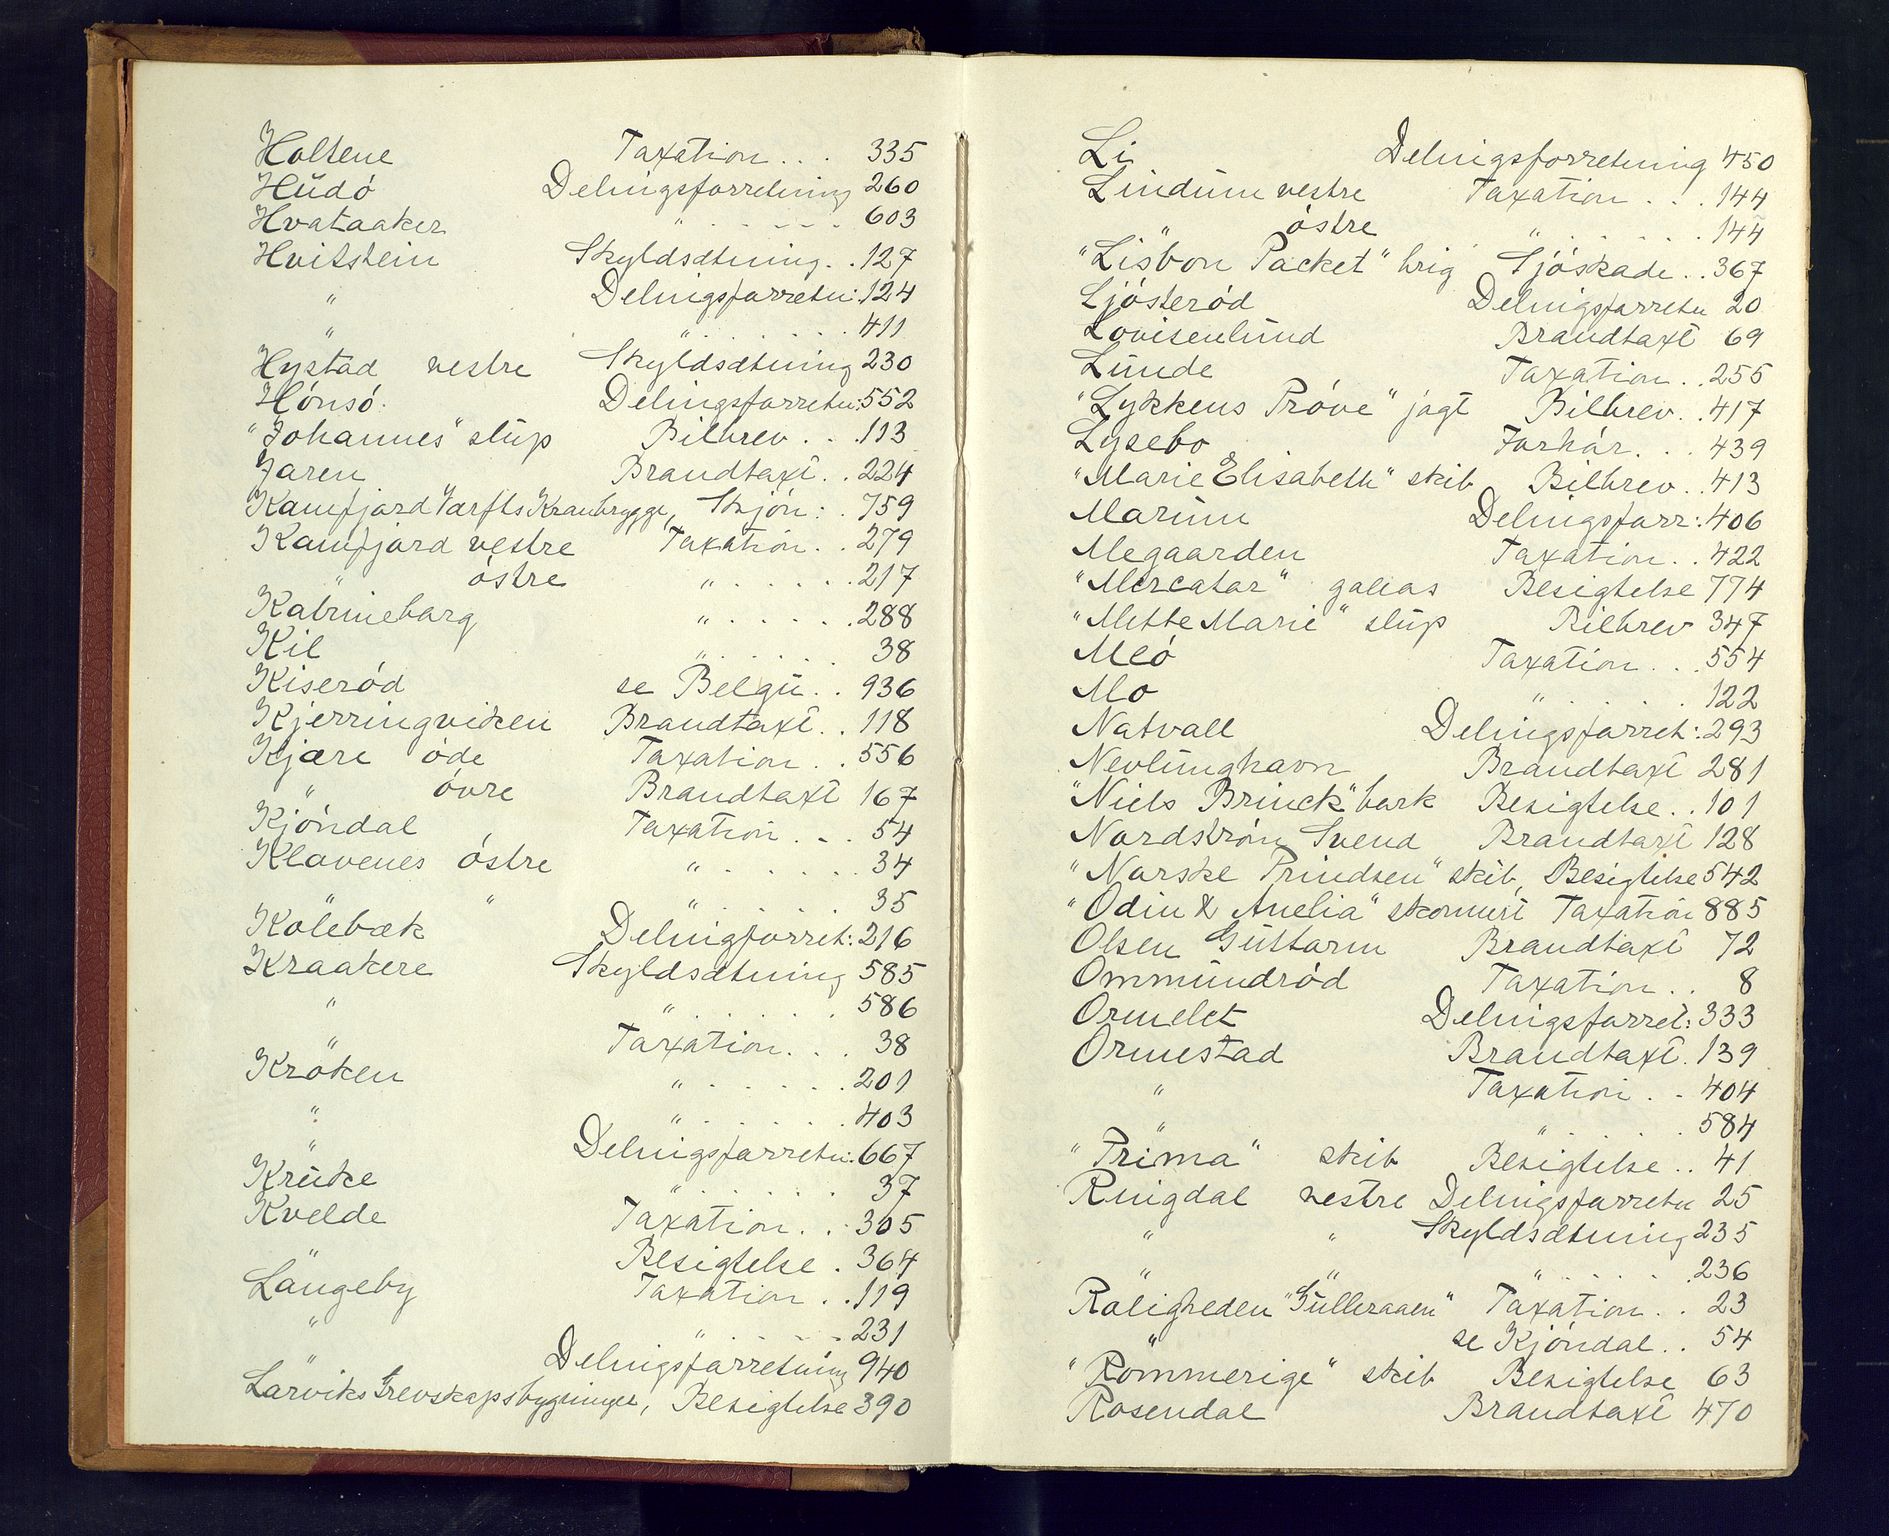 Holtene Taxation . . . 335
Hŭdó Delningsforretning 260
Hvataaker " . . . . . 603
Hvitstein Skyldsætning . . 127
" Delningsforretn: 124
" " . . . . . . 411
Hystad vestre Skyldsætning 230
Hónsó. Delningsforretn: 552
"Johannes" slup Bilbrev . . . 113
Jaren Brandtaxt . . 224
Kamfjord Værfts Kranbrygge, Skjön: . 759
Kamfjord vestre Taxation . . 279
" östre " . . . . . . 217
Katrineborg " . . . . . . 288
Kil " . . . . . 38
Kiseród se Belgu . . 936
Kjerringviken Brandtaxt . . 118
Kjære óde Taxation . . 556
" óvre Brandtaxt 167
Kjóndal Taxation . . . 54
Klavenes óstre " . . . . . . 34
" " " . . . . . 35
Kolebæk Delningforret: 216
Kraakere Skyldsætning 585
" " . . . . . . 586
" Taxation . . . 38
Kröken " . . . . . . 201
" " . . . . . . 403
" Delningsforretn: 667
Krŭke " . . . . . . 37
Kvelde Taxation . . . 305
" Besigtelse . 364
Langeby Taxation . . . 119
" " . . . . . 231
" Delningsforretning 940
Larviks Grevskapsbygninger, Besigtelse 390
Li Delningsforretning 450
Lindŭm vestre Taxation . . . 144
" östre " . . . . . . 144
"Lisbon Packet" brig Sjóskade . . 367
Ljósteród Delningsforretn 20
Lovisenlŭnd Brandtaxt 69
Lŭnde Taxation . . 255
"Lykkens Próve" jagt Bilbrev . . 417
Lysebo Forkår . . . 439
"Marie Elisabeth" skib Bilbrev . . 413
Marŭm Delningsforr: 406
Megaarden Taxation . . 422
"Mercator" galias Besigtelse 774
"Mette Marie" slup Bilbrev 347
Meó Taxation . . . 554
Mo " . . . . . 122
Natvall Delningsforret: 293
Nevlŭnghavn Brandtaxt 281
"Niels Brinck" bark Besigtelse . . 101
Nordström Svend Brandtaxt 128
"Norske Prindsen" skib, Besigtelse 542
"Odin & Amelia" skonnert Taxation 885
Olsen Guttorm Brandtaxt 72
Ommŭndród Taxation . . 8
Ormelet Delningsforret: 333
Ormestad Brandtaxt . 139
" Taxation . . 404
" " . . . . . . 584
"Prima" skib Besigtelse . . 41
Ringdal vestre Delningsforretn 25
" " Skyldsætning 235
" " " . . . . . 236
Roligheden "Gulleraaen" Taxation . . 23
" se Kjóndal . . 54
"Rommerige" skib Besigtelse 63
Rosendal Brandtaxt 470